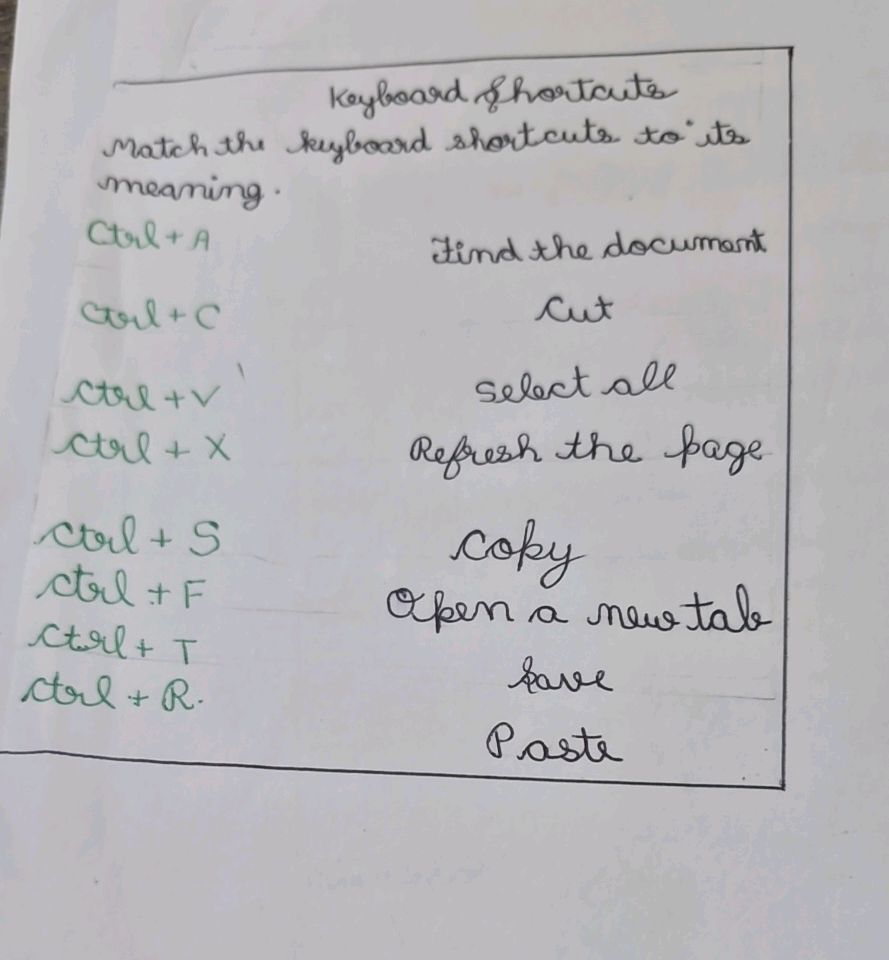 Keyboard Shortcuts
Match the keyboard shortcuts to its
meaning.
Ctrl + A Find the document
Ctrl + C Cut
Ctrl + V Select all
Ctrl + X Refresh the page
Ctrl + S Copy
Ctrl + F Open a new tab
Ctrl + T Save
Ctrl + R. Paste